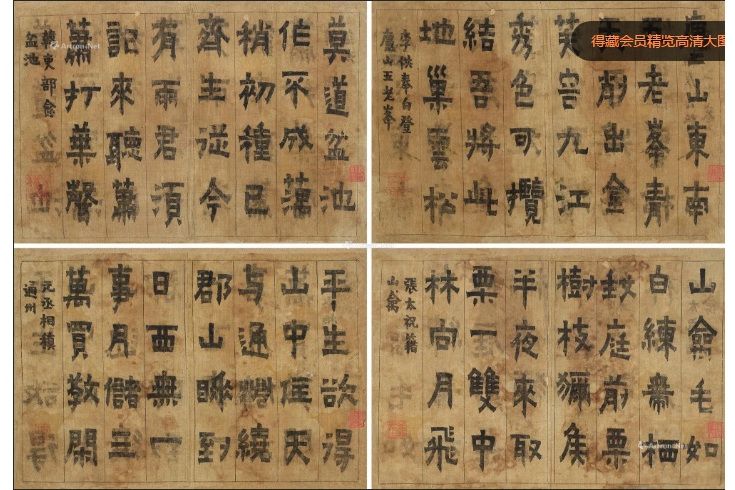 得藏会员精览高清大图
廬山東南
五老峯青
天削出金
芙容九江
秀色可攬
結吾將此
地巢雲松
李供奉白登
廬山五老峯
莫道盆池
作不成藕
稍初種已
齊生從今
有雨君須
記來聽蕭
蕭打葉聲
韓吏部愈
盆池
山禽毛如
白練帶栖
我庭前栗
樹枝獼猴
半夜來取
栗一雙中
林向月飛
張太祝籍
山禽
平生欲得
山中住天
与通州繞
郡山睡到
日西無一
事月儲三
萬買教閑
元丞相稹
通州